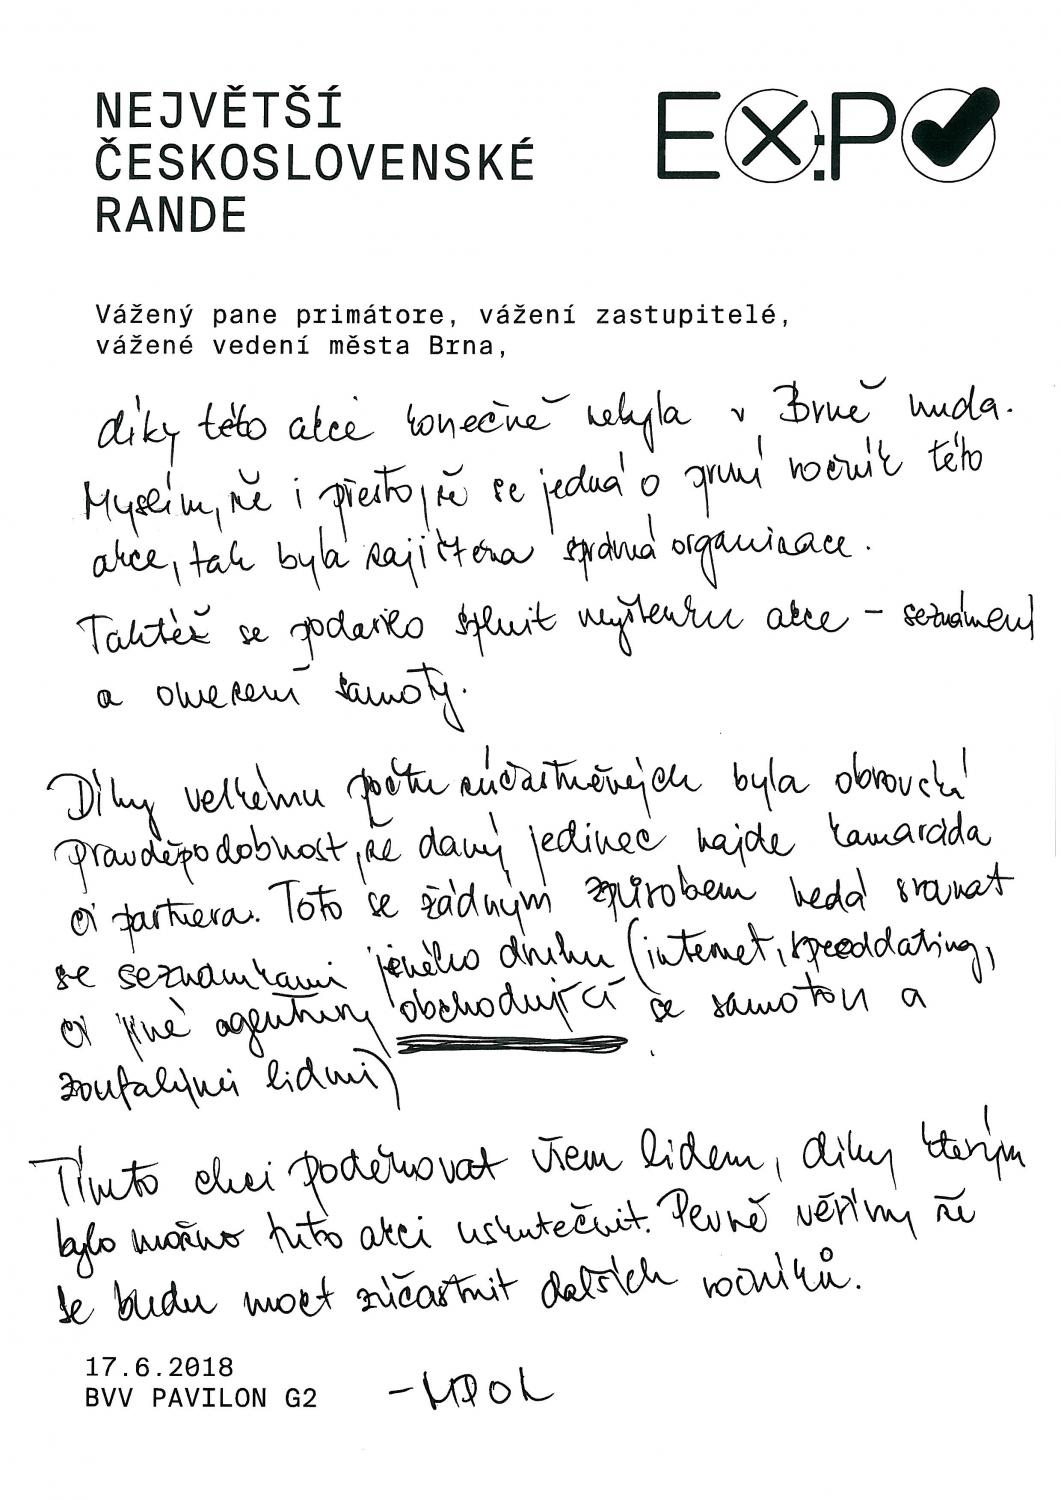 NEJVĚTŠÍ
ČESKOSLOVENSKÉ
RANDE
EX:PO
Vážený pane primátore, vážení zastupitelé,
vážené vedení města Brna,
díky této akce konečně nebyla v Brně nuda.
Myslím, že i přesto, že se jedná o první ročník této
akce, tak byla zajištěna správná organizace.
Taktéž se podařilo splnit myšlenku akce – seznámení
a omezení samoty.
Díky velkému počtu zúčastněných byla obrovská
pravděpodobnost, že daný jedinec najde kamaráda
či partnera. Toto se žádným způsobem nedá srovnat
se seznamkami jiného druhu (internet, speeddating,
či jiné agentury obchodující se samotou a
zoufalými lidmi)
Tímto chci poděkovat všem lidem, díky kterým
bylo možno tuto akci uskutečnit. Pevně věřím, že
se budu moct zúčastnit dalších ročníků.
17.6.2018
BVV PAVILON G2